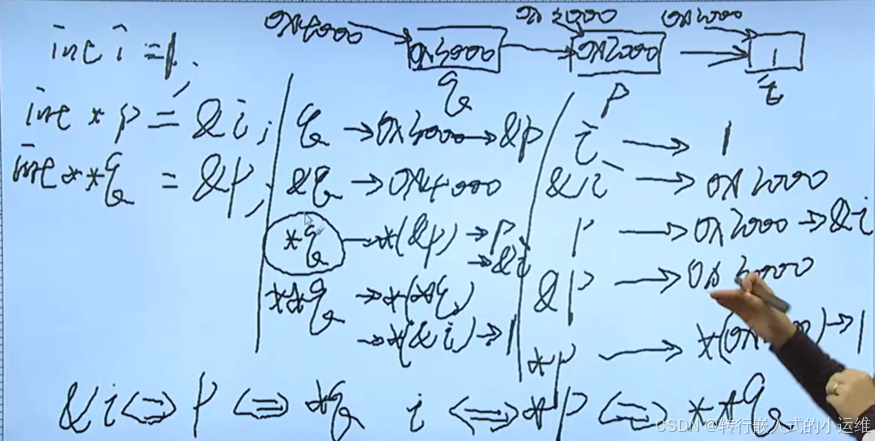 0x4000 → 0x3000 0x3000 → 0x2000 0x2000 → 1
q p i
int i = 1;
int *p = &i;
int **q = &p;
q → 0x3000 → &p
&q → 0x4000
*q → *(&p) → p
→ &i
**q → *(*q)
→ *(&i) → 1
i → 1
&i → 0x2000
p → 0x2000 → &i
&p → 0x3000
*p → *(0x2000) → 1
&i ⇔ p ⇔ *q i ⇔ *p ⇔ **q
CSDN @转行嵌入式的小运维